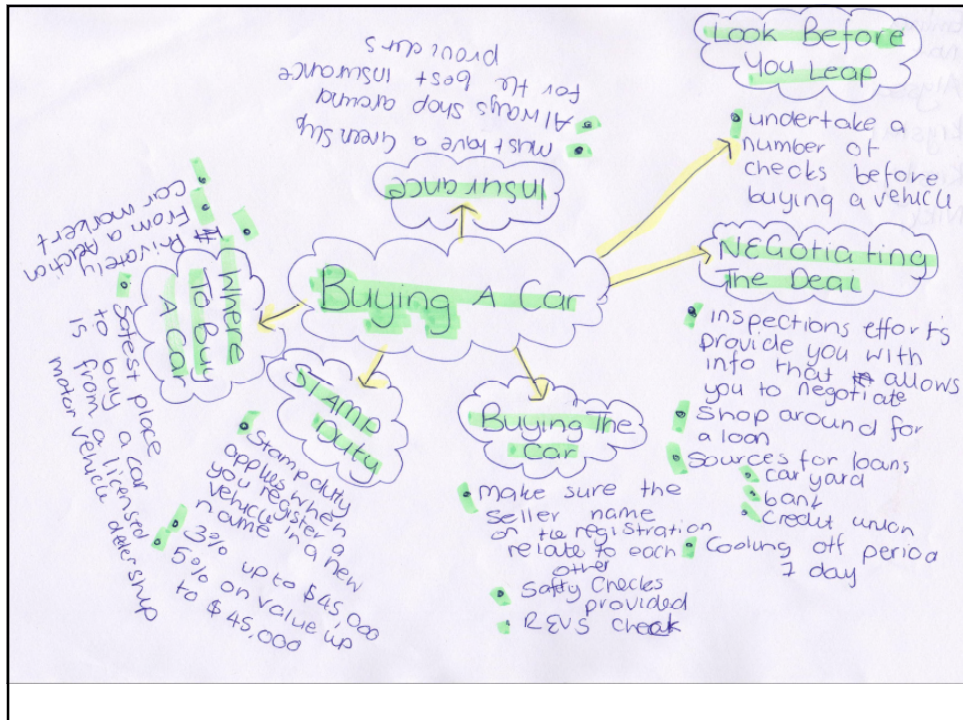 Buying A Car
Insurance
must have a Greenslip
Always shop around
for the best insurance
providers
Look Before
You Leap
undertake a
number of
checks before
buying a vehicle
NEGotiating
The Deal
inspections effort's
provide you with
info that allows
you to negotiate
Shop around for
a loan
Sources for loans
Car yard
bank
Credit union
Cooling off period
7 day
Buying The
Car
make sure the
seller name
on the registration
relate to each
other
Safty Checks
provided
REVS check
STAMP
Duty
Stamp duty
applies when
you register a
vehicle in a new
name
3% up to $45,000
5% on value up
to $45,000
Where
To Buy
A Car
Privately
From a Auction
Car markert
Safest place
to buy a car
is from a licensed
motor vehicle dealership